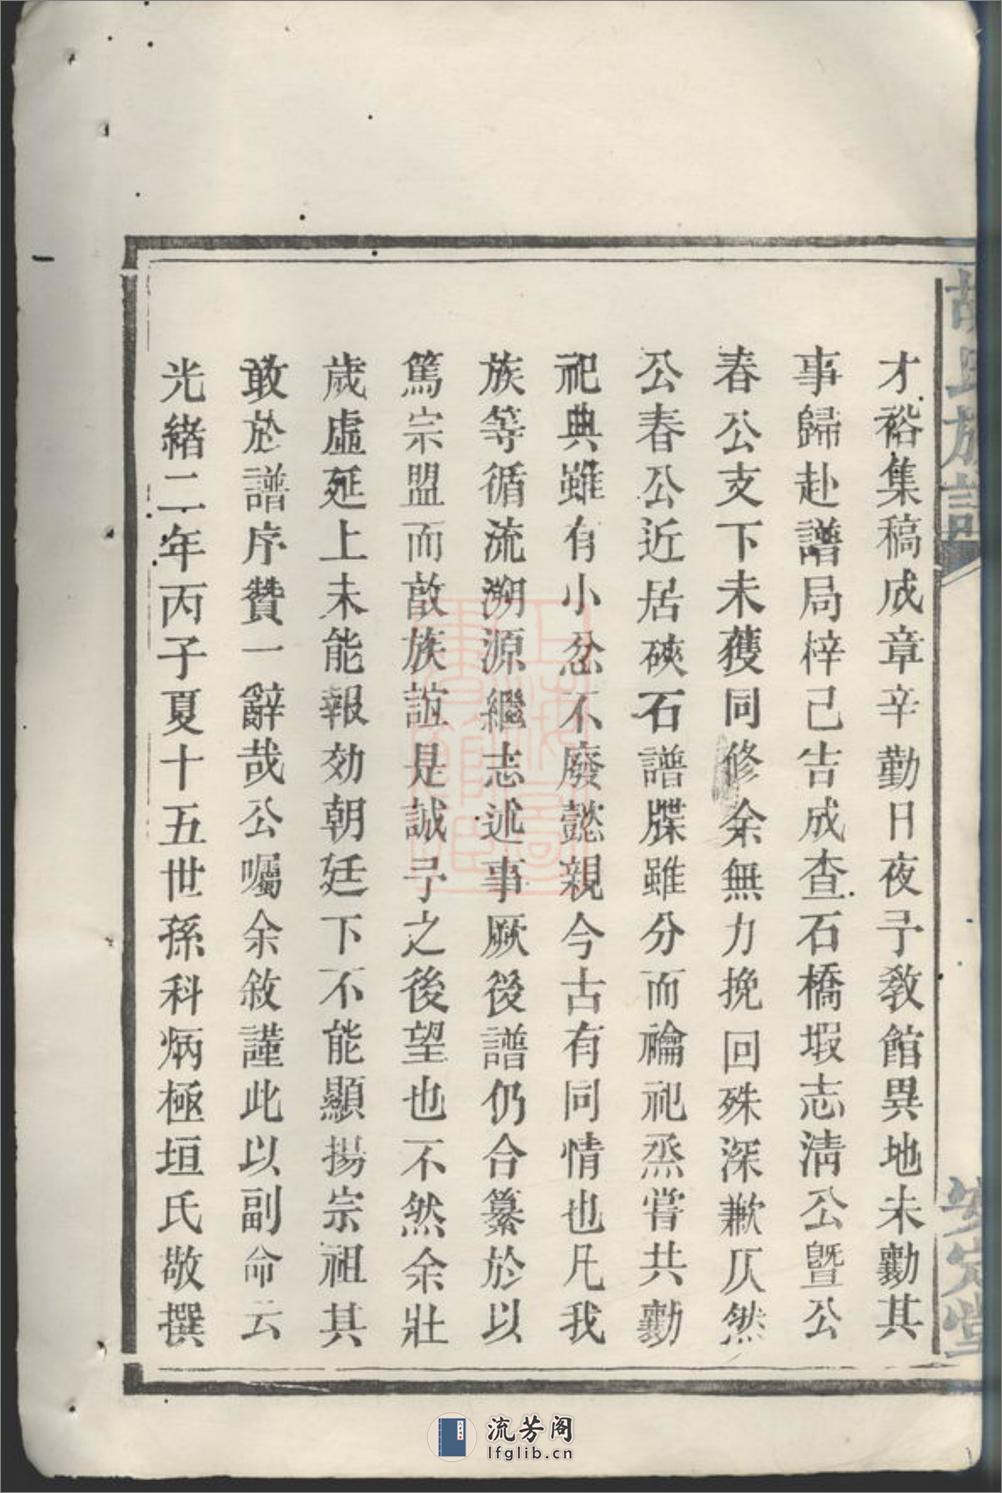 胡氏族譜
安定堂
才裕集稿成章辛勤日夜予教館異地未勷其
事歸赴譜局梓己告成查石橋塅志淸公暨公
春公支下未獲同修余無力挽回殊深歉仄然
公春公近居硤石譜牒雖分而禴祀烝嘗共勷
祀典雖有小忿不廢懿親今古有同情也凡我
族等循流溯源繼志述事厥後譜仍合纂於以
篤宗盟而敌族誼是誠予之後望也不然余壯
歲虛延上未能報効朝廷下不能顯揚宗祖其
敢於譜序贊一辭哉公囑余敘謹此以副命云
光緒二年丙子夏十五世孫科炳極垣氏敬撰
上海圖書館藏
流芳阁
lfglib.cn